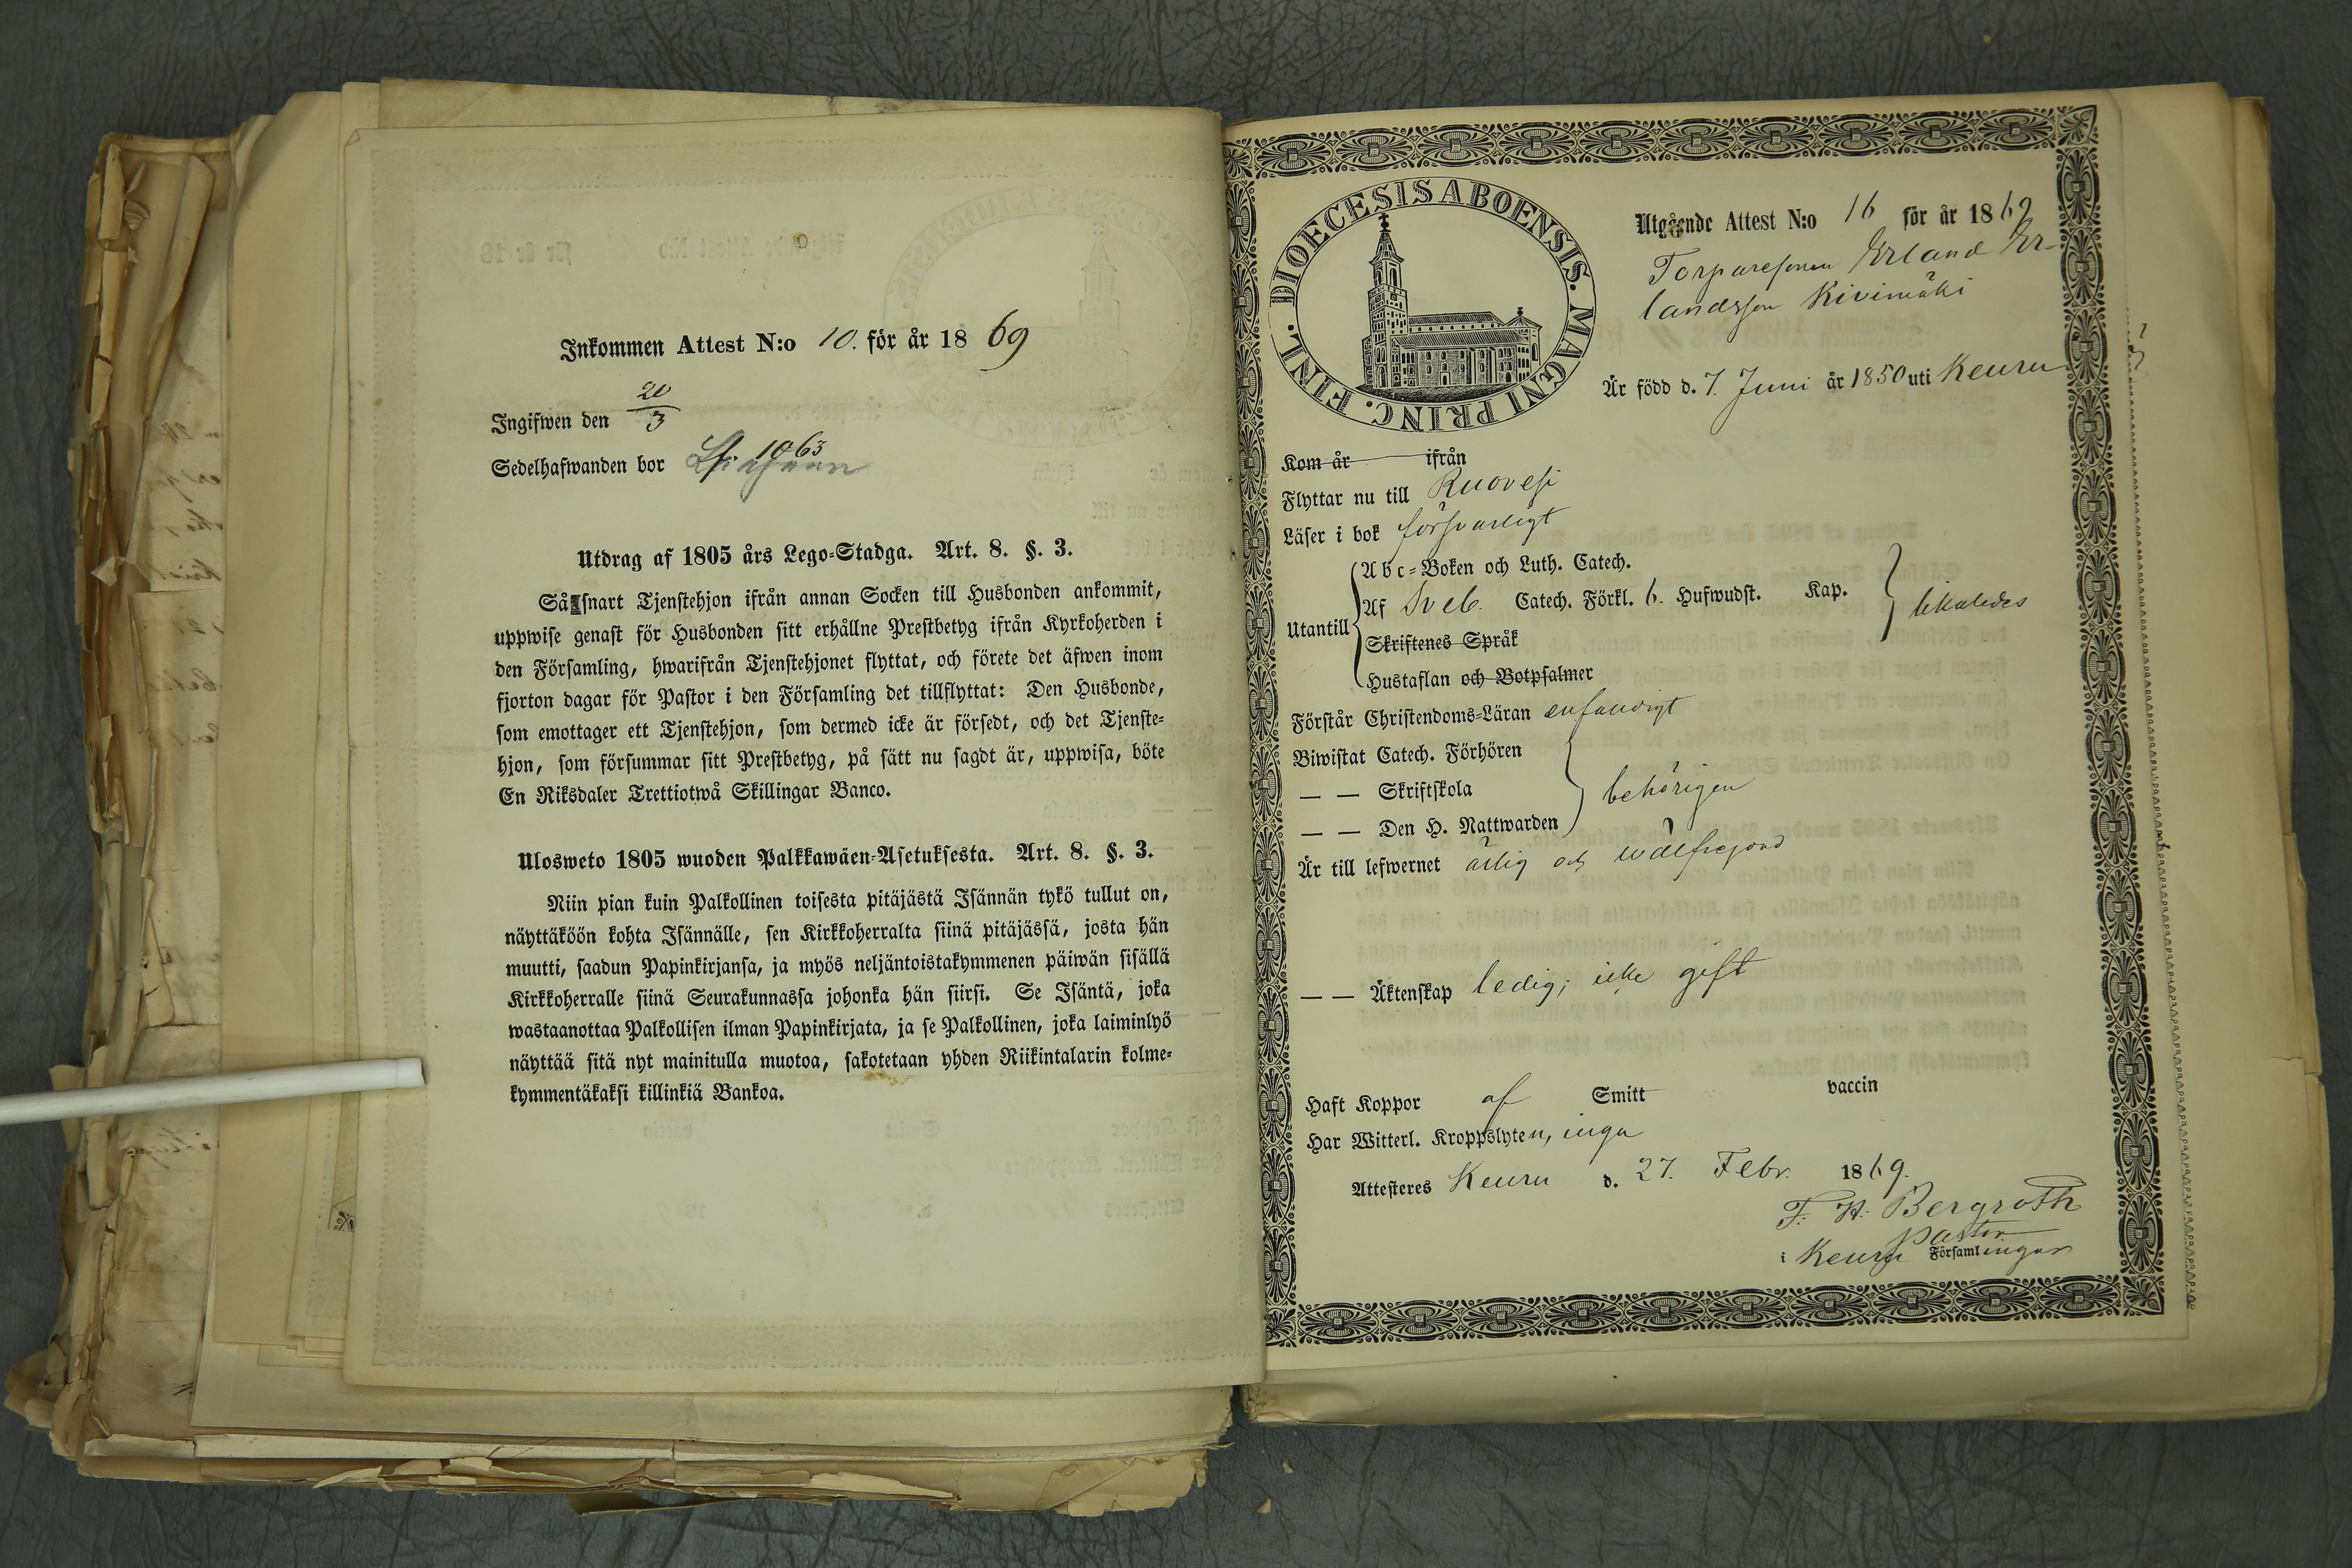 Inkommen Attest N:o 10. för år 1869
Ingifwen den 20/3
Sedelhafwanden bor f. 1063
Utdrag af 1805 års Lego-Stadga. Art. 8. §. 3.
Så snart Tjenstehjon ifrån annan Socken till Husbonden ankommit,
uppwise genast för Husbonden sitt erhållne Prestbetyg ifrån Kyrkoherden i
den Församling, hwarifrån Tjenstehjonet flyttat, och förete det äfwen inom
fjorton dagar för Pastor i den Församling det tillflyttat: Den Husbonde,
som emottager ett Tjenstehjon, som dermed icke är försedt, och det Tjenste-
hjon, som försummar sitt Prestbetyg, på sätt nu sagdt är, uppwisa, böte
En Riksdaler Trettiotwå Skillingar Banco.
Ulosweto 1805 wuoden Palkkawäen-Asetuksesta. Art. 8. §. 3.
Niin pian kuin Palkollinen toisesta pitäjästä Isännän tykö tullut on,
näyttäköön kohta Isännälle, sen Kirkkoherralta siinä pitäjässä, josta hän
muutti, saadun Papinkirjansa, ja myös neljäntoistakymmenen päiwän sisällä
Kirkkoherralle siinä Seurakunnassa johonka hän siirsi. Se Isäntä, joka
wastaanottaa Palkollisen ilman Papinkirjata, ja se Palkollinen, joka laiminlyö
näyttää sitä nyt mainitulla muotoa, sakotetaan yhden Riikintalarin kolme-
kymmentäkaksi killinkiä Bankoa.
DIOECESIS ABOENSIS. MAGNI PRINC. FINL.
Utgående Attest N:o 16 för år 1869
Torparesonen Erland Er-
landsson Kivimäki
Är född d. 7. Juni år 1850 uti Keuru
Kom år ifrån
Flyttar nu till Ruovesi
Läser i bok försvarligt
Abc-Boken och Luth. Catech.
Utantill Af Sveb. Catech. Förkl. 6. Hufwudst. Kap. likaledes
Skriftenes Språk
Hustaflan och Botpsalmer
Förstår Christendoms-Läran enfaldigt
Biwistat Catech. Förhören
— — Skriftskola behörigen
— — Den H. Nattwarden
Är till lefwernet ärlig och wälfrejdad
— — Äktenskap ledig; icke gift
Haft Koppor af Smitt vaccin
Har Witterl. Kroppslyten, inga
Attesteres Keuru d. 27. Febr. 1869.
F. H. Bergroth
Pastor
i Keuru Församlingar